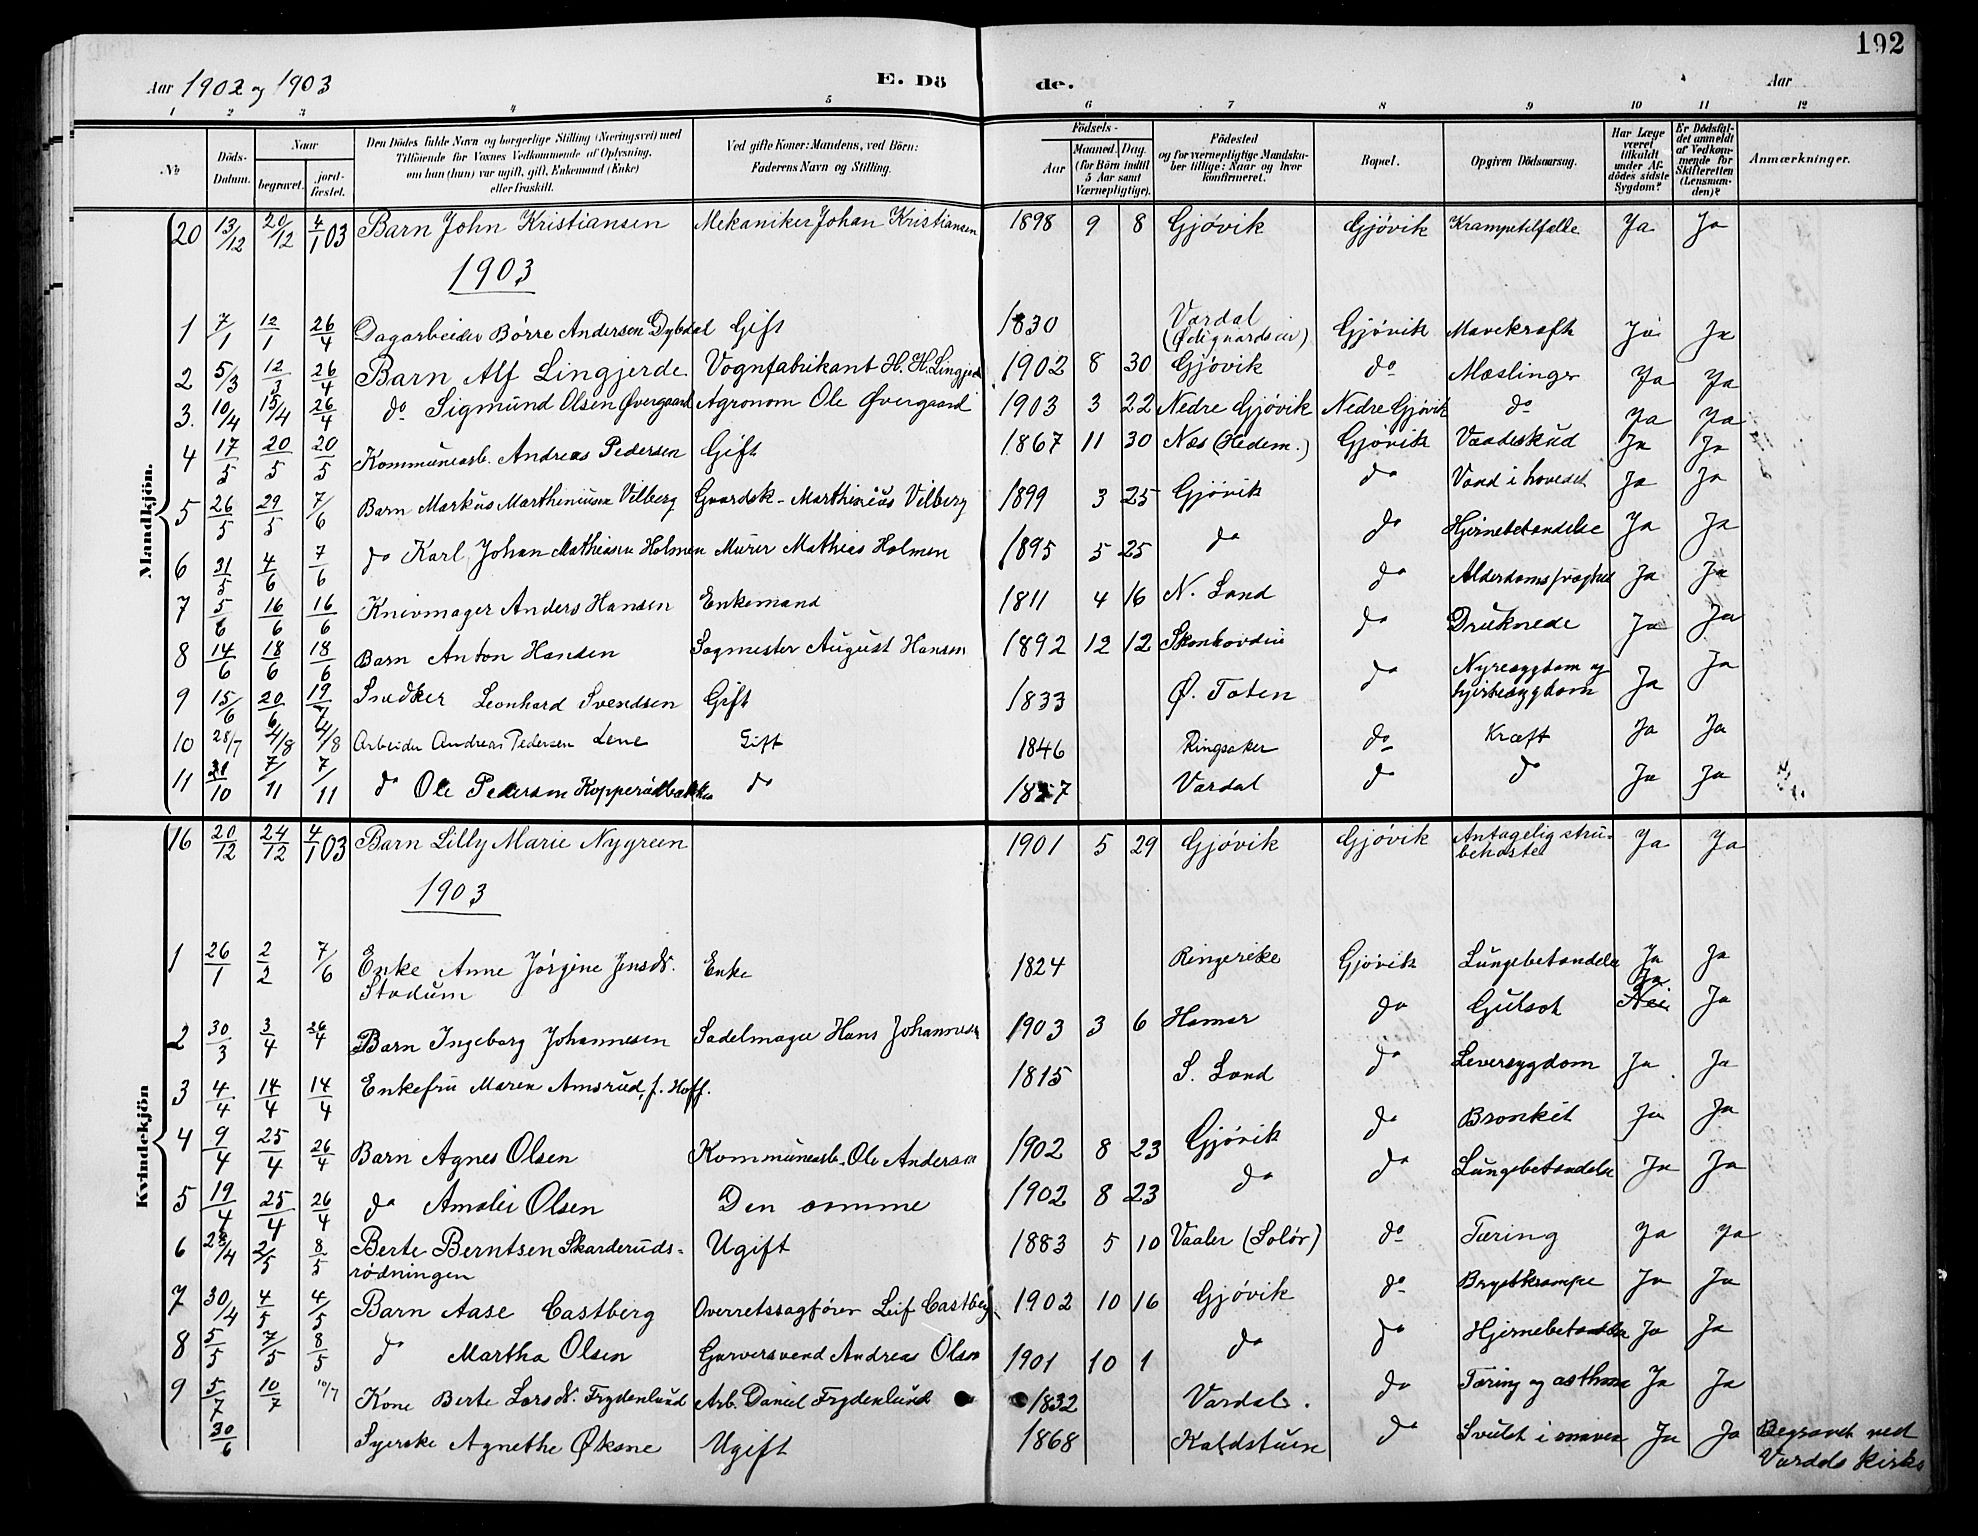 192
Aar 1902 og 1903 E. Dö de. Aar
1 2 3 4 5 6 7 8 9 10 11 12
No. Döds-Datum. Naar begravet. jordfæstet. Den Dödes fulde Navn og borgerlige Stilling (Næringsvei) med Tilföiende for Voxnes Vedkommende af Oplysning, om han (hun) var ugift, gift, Enkemand (Enke) eller fraskilt. Ved gifte Koner: Mandens, ved Börn: Faderens Navn og Stilling. Födsels- Aar Maaned. Dag. (for Börn indtil 5 Aar samt Værnepligtige). Födested og for værnepligtige Mandskaber tillige: Naar og hvor konfirmeret. Bopæl. Opgiven Dödsaarsag. Har Læge været tilkaldt under Afdödes sidste Sygdom? Er Dödsfaldet anmeldt af Vedkommende for Skifteretten (Lensmanden)? Anmærkninger.
Mandkjön.
20 13/12 20/12 4/1 03 Barn John Kristiansen Mekaniker Johan Kristiansen 1898 9 8 Gjövik Gjövik Krampetilfælle Ja Ja
1903
1 7/1 12/1 26/4 Dagarbeider Börre Andersen Dybdal Gift 1830 Vardal Gjövik Mavekræft Ja Ja
2 5/3 12/3 26/4 Barn Alf Lingjerde Vognfabrikant H. H. Lingjerde 1902 8 30 Gjövik do Mæslinger Ja Ja
3. 10/4 15/4 26/4 do Sigmund Olsen Övergaard Agronom Ole Övergaard 1903 3 22 Nedre Gjövik Nedre Gjövik do Ja Ja
4 17/5 20/5 20/5 Kommunearb. Andreas Pedersen Gift 1867 11 30 Næs (Hedem.) Gjövik Vaadeskud Ja Ja
5 26/5 29/5 7/6 Barn Markus Marthiniusen Vilberg Gaardsk. Marthinius Vilberg 1899 3 25 Gjövik do Vand i hovedet Ja Ja
6 31/5 4/6 7/6 do Karl Johan Mathiasen Holmen Murer Mathias Holmen 1895 5 25 do do Hjernebetændelse Ja Ja
7 5/6 16/6 16/6 Knivmager Anders Hansen Enkemand 1811 4 16 N. Land do Alderdomssvaghed Ja Ja
8 14/6 18/6 18/6 Barn Anton Hansen Sagmester August Hansen 1892 12 12 do Druknede Ja Ja
9 15/6 20/6 19/7 Snedker Leonhard Svendsen Gift 1833 Ø. Toten do Nyresygdom og hjertesygdom Ja Ja
10 28/7 4/8 4/8 Arbeider Andreas Pedersen Lene Gift 1846 Ringsaker do Kræft Ja Ja
11 31/10 7/11 7/11 do Ole Pedersen Kopperudbakken do 1857 Vardal do do Ja Ja
Kvindekjön
16 20/12 24/12 4/1 03 Barn Lilly Marie Nygreen 1901 5 29 Gjövik Gjövik Antagelig strubehoste Ja Ja
1903
1 26/1 2/2 7/6 Enke Anne Jörgine Jensdr. Stadum Enke 1824 Ringerike Gjövik Lungebetændelse Ja Ja
2 30/3 3/4 26/4 Barn Ingeborg Johannesen Sadelmager Hans Johannesen 1903 3 6 Hamar do Gulsot Ja Nei Ja
3 4/4 14/4 14/4 Enkefru Maren Amsrud, f. Hoff. 1815 S. Land do Leversygdom Ja Ja
4 9/4 25/4 26/4 Barn Agnes Olsen Kommunearb. Ole Andersen 1902 8 23 Gjövik do Bronkit Ja Ja
5 19/4 25/4 26/4 do Amalie Olsen Den samme 1902 8 23 do do Lungebetændelse Ja Ja
6 28/4 2/5 8/5 Berte Berntsen Skarderudsrödningen Ugift 1883 5 10 Vaaler (Solör) do Tæring Ja Ja
7 30/4 4/5 4/5 Barn Aase Castberg Overretssagförer Leif Castberg 1902 10 16 Gjövik do Brystkrampe Ja Ja
8 5/5 7/5 8/5 do Martha Olsen Garversvend Andreas Olsen 1901 10 1 do do Hjernebetændelse Ja Ja
9 5/7 10/7 10/7 Kone Berte Larsdr. Frydenlund Arb. Daniel Frydenlund 1832 Vardal. do Tæring og asthma Ja Ja
30/6 Syerske Agnethe Øksne Ugift 1868 Kaldstuen do Svulst i maven Ja Ja Begravet ved Vardals kirke